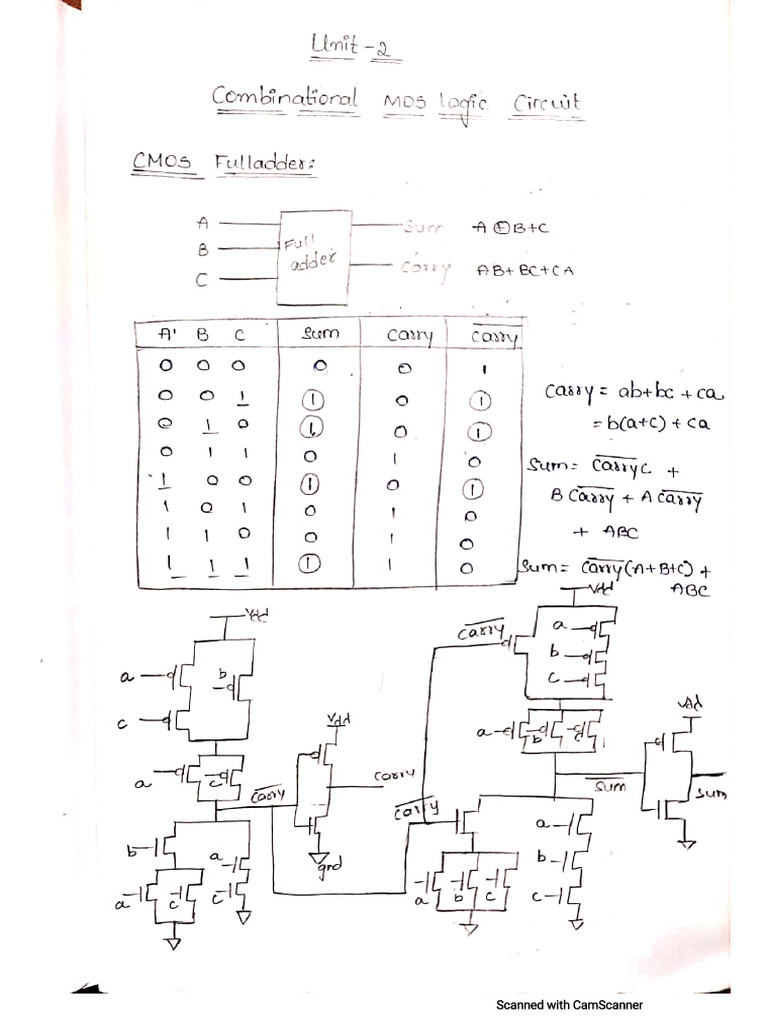 Unit-2
Combinational MOS Logic Circuit
CMOS Fulladder:
A
B
C
Full adder
Sum A⊕B+C
Carry AB+BC+CA
A' B C Sum Carry C̅a̅r̅r̅y̅
0 0 0 0 0 1
0 0 1 1 0 1
0 1 0 1 0 1
0 1 1 0 1 0
1 0 0 1 0 1
1 0 1 0 1 0
1 1 0 0 1 0
1 1 1 1 1 0
Carry = ab+bc+ca
= b(a+c)+ca
Sum = C̅a̅r̅r̅y̅c +
B C̅a̅r̅r̅y̅ + A C̅a̅r̅r̅y̅
+ ABC
Sum = C̅a̅r̅r̅y̅(A+B+C) +
ABC
Vdd
a
b
c
a
c
C̅a̅r̅r̅y̅
b
a
a
c
c
Vdd
carry
grd
Vdd
C̅a̅r̅r̅y̅
a
b
c
a
b
c
C̅a̅r̅r̅y̅
a
b
c
a
b
c
S̅u̅m̅
Vdd
Sum
Scanned with CamScanner